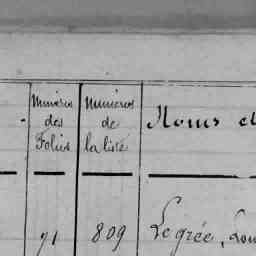 Numéros des Folios
Numéros de la liste
Noms et
71
809
Legrée, Lou